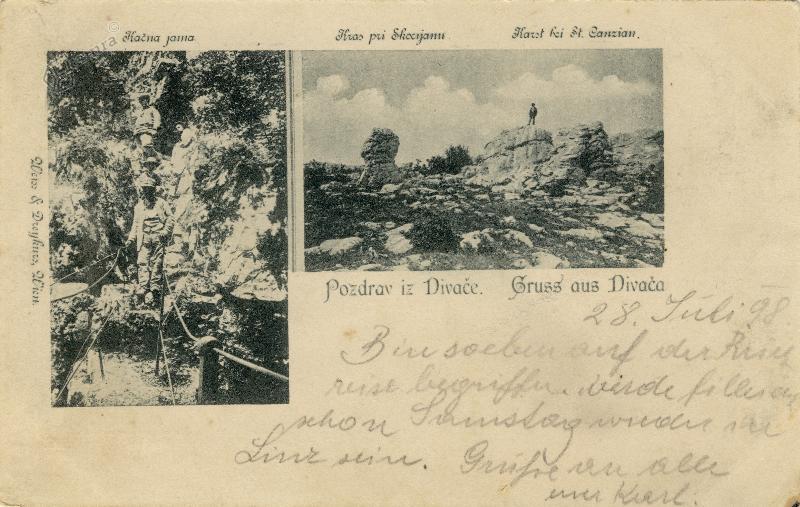 Kačna jama.
Kras pri Škocijanu.
Karst bei St. Canzian.
Pozdrav iz Divače. Gruss aus Divača
28. Juli 98.
Bin soeben auf der
reise begriffen. werde
schon Samstag wieder in
Linz sein. Grüße an alle
euer Karl.